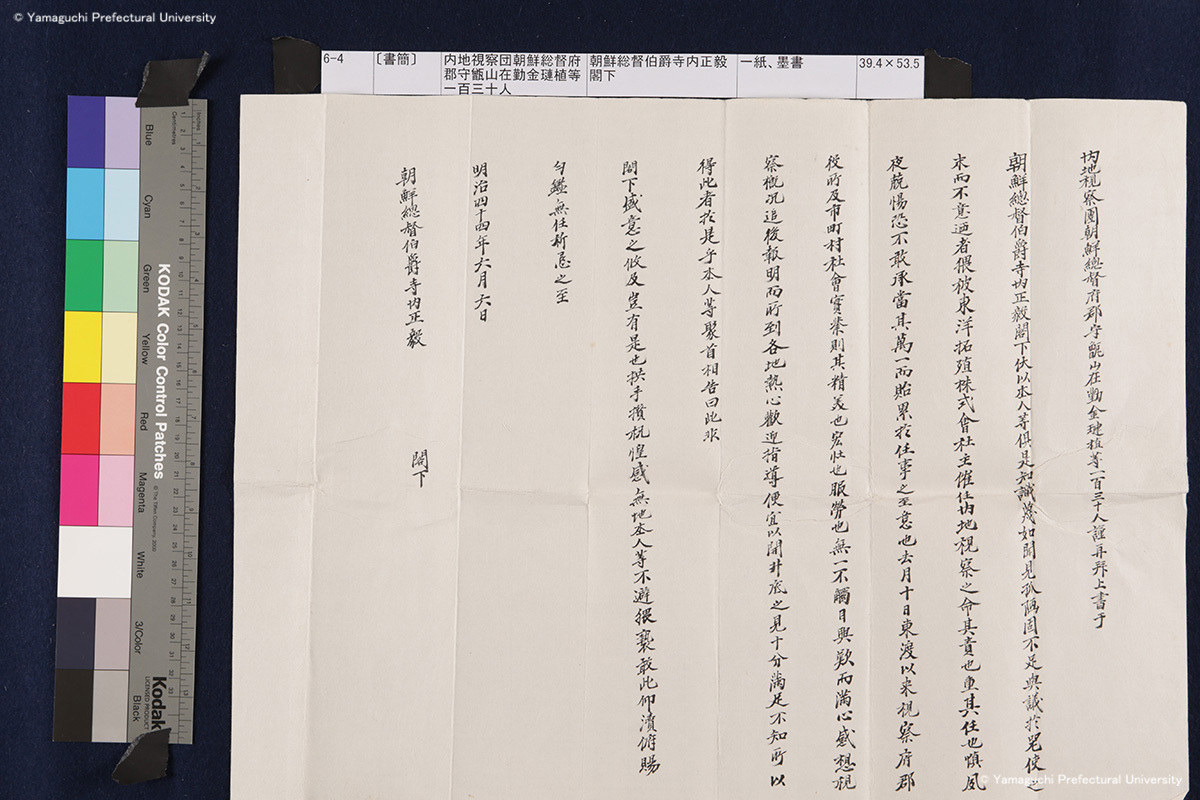 © Yamaguchi Prefectural University
6-4
〔書簡〕
内地視察団朝鮮総督府
郡守甑山在勤金璉植等
一百三十人
朝鮮総督伯爵寺内正毅
閣下
一紙、墨書
39.4×53.5
內地視察團朝鮮總督府郡守甑山在勤金璉植等一百三十人謹再拜上書于
朝鮮總督伯爵寺內正毅閣下伏以本人等俱是知識蔑如聞見孤陋固不足與議於星使之
末而不意迺者猥被東洋拓殖株式會社主催任內地視察之命其責也重其任也愼夙
夜兢惕恐不敢承當其萬一而貽累於任事之至意也去月十日東渡以來視察府郡
役所及市町村社會實業則其精美也宏壯也服勞也無一不觸目興歎而滿心感想視
察槪況追後報明而所到各地熱心歡迎指導便宜以開井底之見十分滿足不知所以
得此者於是乎本人等聚首相告曰此非
閣下盛意之攸及豈有是也拱手攢杌惶感無地本人等不避猥褻敢此仰瀆俯賜
勻鑑無任祈恳之至
明治四十四年六月六日
朝鮮總督伯爵寺內正毅 閣下
Inches
Centimetres
Blue
Cyan
Green
Yellow
Red
Magenta
White
3/Color
Black
KODAK Color Control Patches
© The Tiffen Company, 2000
Kodak
LICENSED PRODUCT
© Yamaguchi Prefectural University